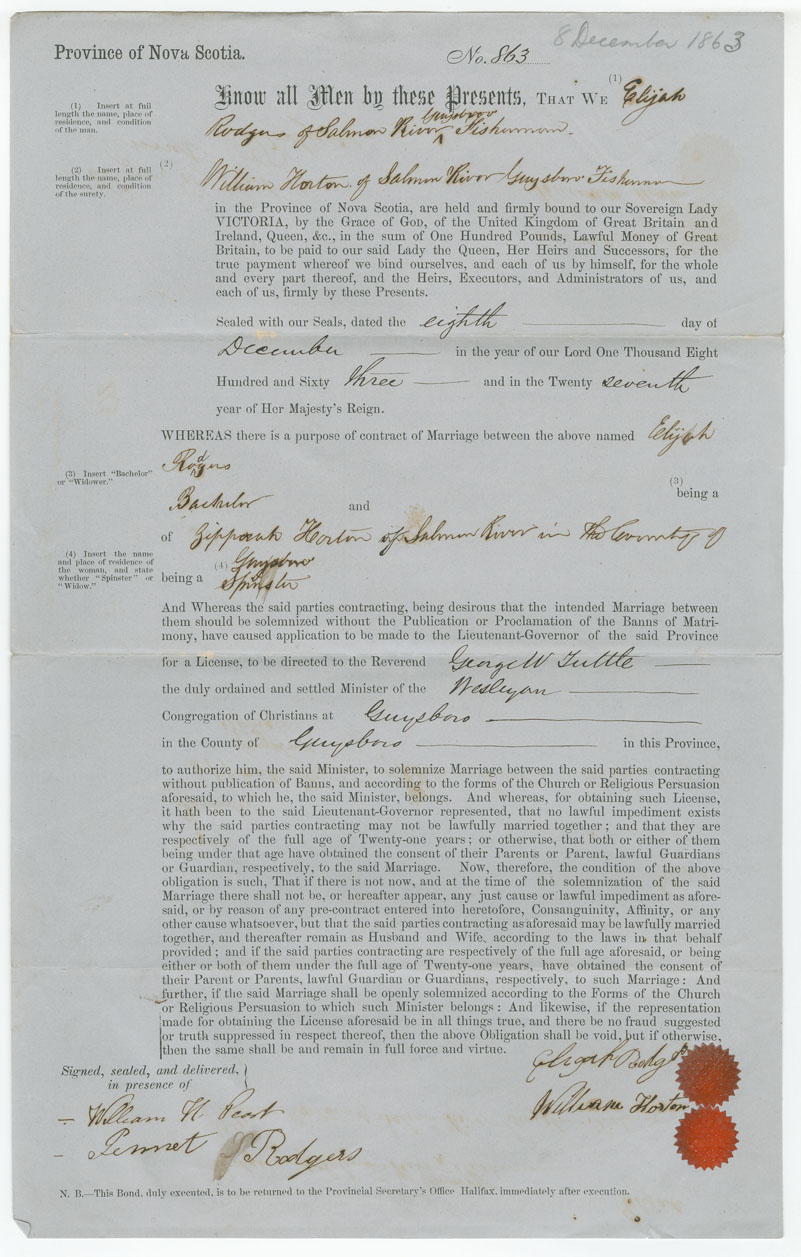 8 December 1863
Province of Nova Scotia.
No. 863
(1)
Know all Men by these Presents, THAT WE Elijah
(1) Insert at full
length the name, place of
residence, and condition
of the man.
Guysboro
Rodgers of Salmon River ^ Fisherman.
(2) Insert at full
length the name, place of
residence, and condition
of the surety.
(2)
William Horton of Salmon River Guysboro Fisherman
in the Province of Nova Scotia, are held and firmly bound to our Sovereign Lady
VICTORIA, by the Grace of GOD, of the United Kingdom of Great Britain and
Ireland, Queen, &c., in the sum of One Hundred Pounds, Lawful Money of Great
Britain, to be paid to our said Lady the Queen, Her Heirs and Successors, for the
true payment whereof we bind ourselves, and each of us by himself, for the whole
and every part thereof, and the Heirs, Executors, and Administrators of us, and
each of us, firmly by these Presents.
Sealed with our Seals, dated the eighth day of
December in the year of our Lord One Thousand Eight
Hundred and Sixty three and in the Twenty seventh
year of Her Majesty's Reign.
WHEREAS there is a purpose of contract of Marriage between the above named Elijah
Rodgers
(3) Insert "Bachelor"
or "Widower."
(3)
being a
Bachelor and
of Zipporah Horton of Salmon River in the County of
(4) Insert the name
and place of residence of
the woman, and state
whether "Spinster" or
"Widow."
(4) Guysboro
being a Spinster
And Whereas the said parties contracting, being desirous that the intended Marriage between
them should be solemnized without the Publication or Proclamation of the Banns of Matri-
mony, have caused application to be made to the Lieutenant-Governor of the said Province
for a License, to be directed to the Reverend George W Tuttle
the duly ordained and settled Minister of the Wesleyan
Congregation of Christians at Guysboro
in the County of Guysboro in this Province,
to authorize him, the said Minister, to solemnize Marriage between the said parties contracting
without publication of Banns, and according to the forms of the Church or Religious Persuasion
aforesaid, to which he, the said Minister, belongs. And whereas, for obtaining such License,
it hath been to the said Lieutenant-Governor represented, that no lawful impediment exists
why the said parties contracting may not be lawfully married together; and that they are
respectively of the full age of Twenty-one years; or otherwise, that both or either of them
being under that age have obtained the consent of their Parents or Parent, lawful Guardians
or Guardian, respectively, to the said Marriage. Now, therefore, the condition of the above
obligation is such, That if there is not now, and at the time of the solemnization of the said
Marriage there shall not be, or hereafter appear, any just cause or lawful impediment as afore-
said, or by reason of any pre-contract entered into heretofore, Consanguinity, Affinity, or any
other cause whatsoever, but that the said parties contracting as aforesaid may be lawfully married
together, and thereafter remain as Husband and Wife, according to the laws in that behalf
provided; and if the said parties contracting are respectively of the full age aforesaid, or being
either or both of them under the full age of Twenty-one years, have obtained the consent of
their Parent or Parents, lawful Guardian or Guardians, respectively, to such Marriage: And
further, if the said Marriage shall be openly solemnized according to the Forms of the Church
or Religious Persuasion to which such Minister belongs: And likewise, if the representation
made for obtaining the License aforesaid be in all things true, and there be no fraud suggested
or truth suppressed in respect thereof, then the above Obligation shall be void, but if otherwise,
then the same shall be and remain in full force and virtue.
Signed, sealed, and delivered,
in presence of
William H. Peart
Rodgers
William Horton
N. B.—This Bond, duly executed, is to be returned to the Provincial Secretary's Office Halifax, immediately after execution.